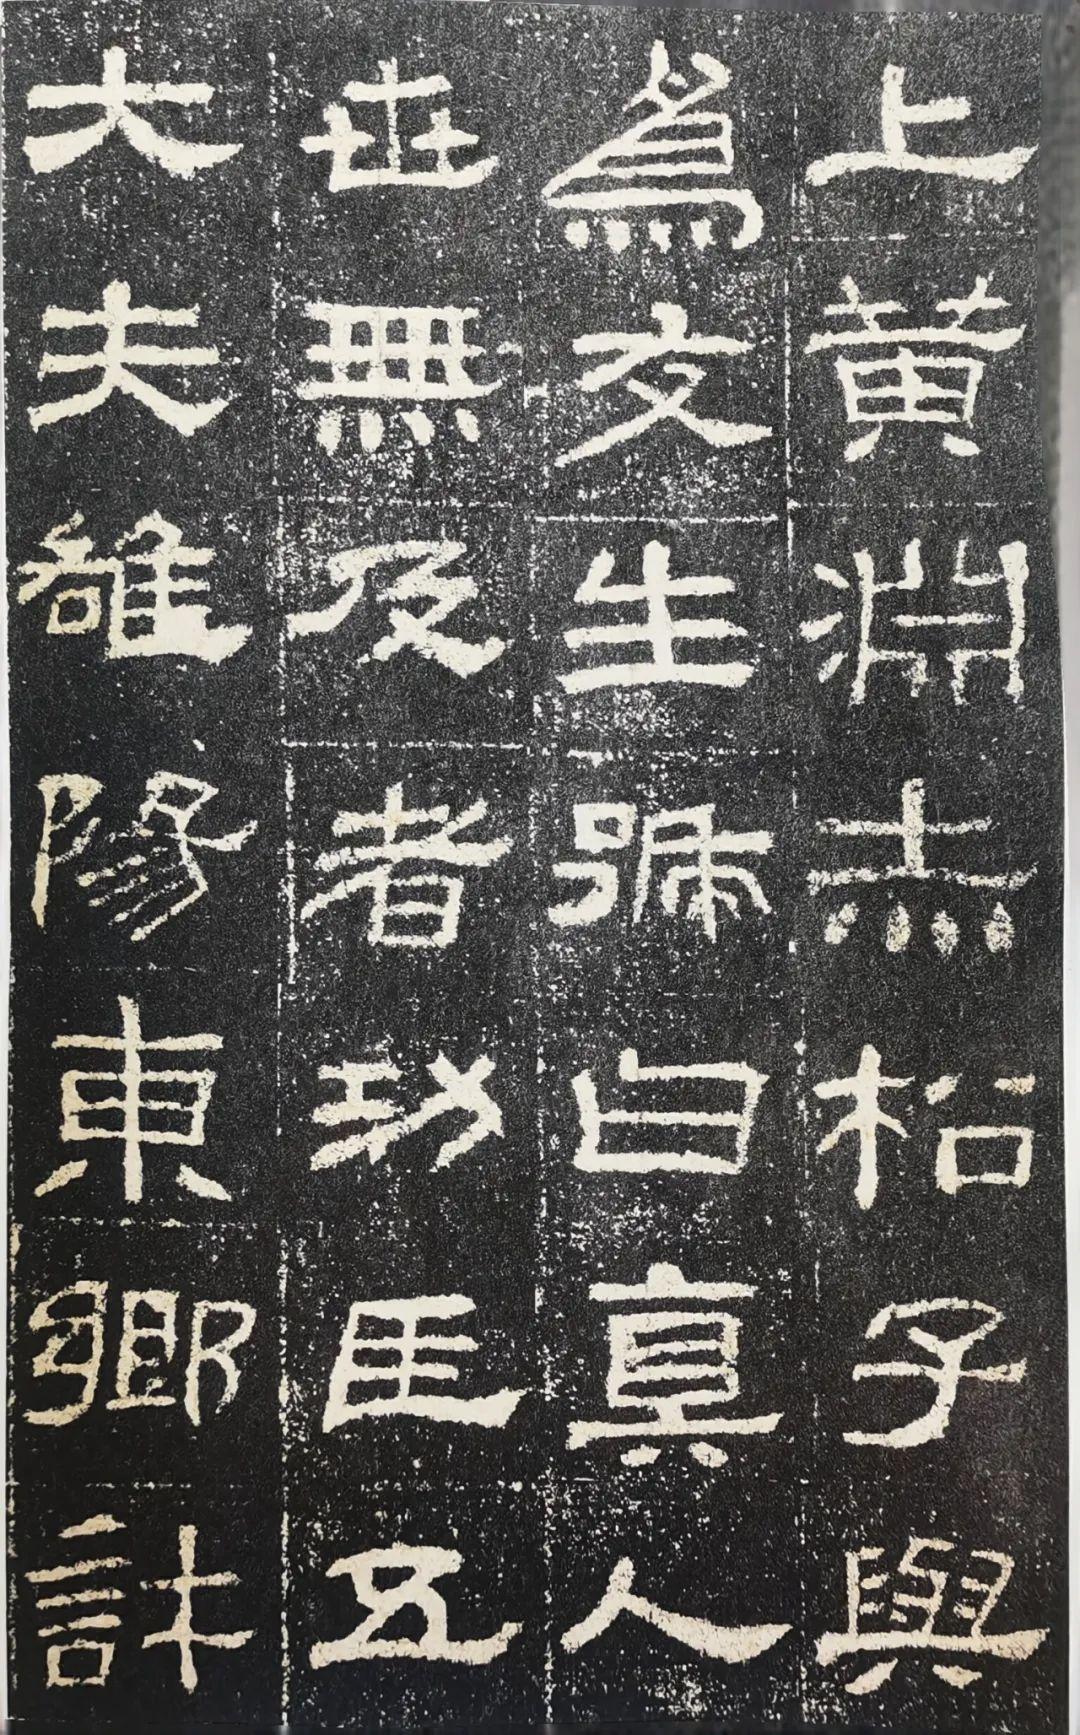 上黃淵赤松子與
爲友生號曰真人
世無及者功臣五
大夫雒陽東鄉許